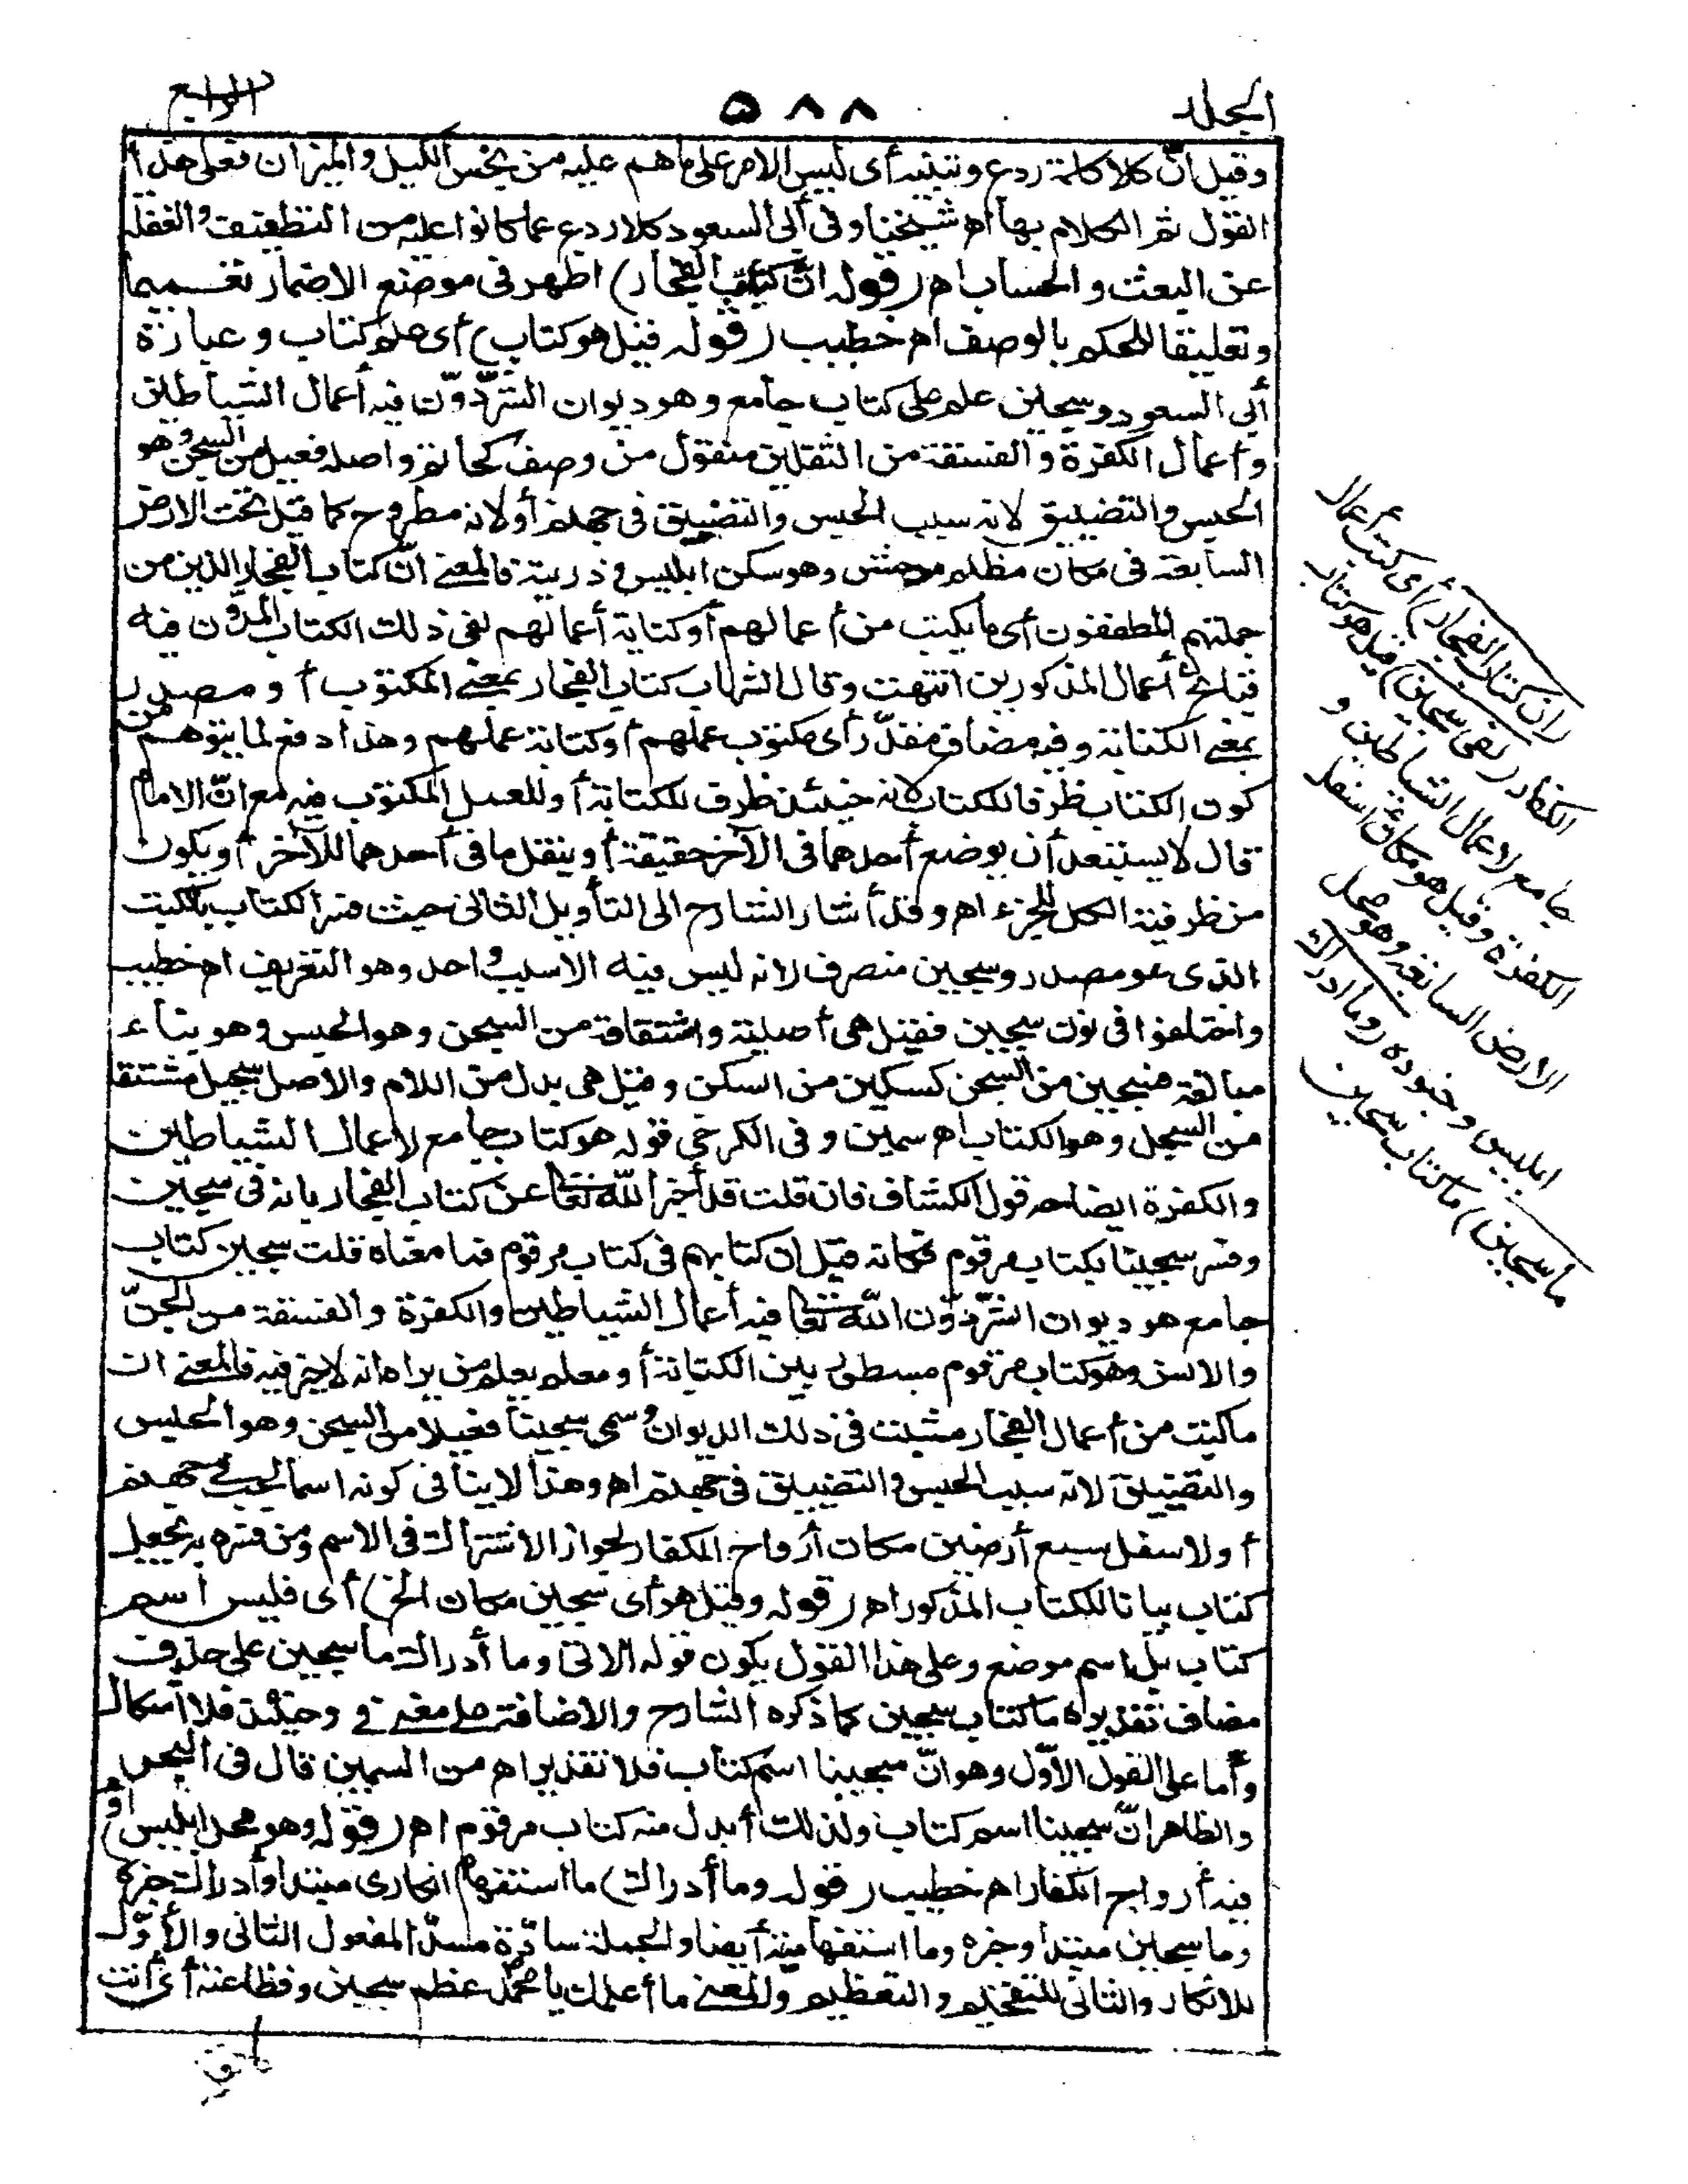 المجلد
٥٨٨
الرابع
وقيل انّ كلا كلمة ردع وتنبيه أى ليس الامر على ما هم عليه من بخس الكيل والميزان فعلى هذا
القول تم الكلام بها اه شيخنا وفى أبى السعود كلا ردع عما كانوا عليه من التطفيف والغفلة
عن البعث والحساب اه (قوله انّ كتاب الفجار) اظهر فى موضع الاضمار تعميما
وتعليقا للحكم بالوصف اه خطيب (قوله قيل هو كتاب) أى علم كتاب وعبارة
أبى السعود وسجين علم على كتاب جامع وهو ديوان الشرّ دوّن فيه أعمال الشياطين
وأعمال الكفرة والفسقة من الثقلين منقول من وصف كحاتم واصله فعيل من السجن وهو
الحبس والتضييق لانه سبب الحبس والتضييق فى جهنم أو لانه مطروح كما قيل تحت الارض
السابعة فى مكان مظلم موحش وهو سكن ابليس وذريته فالمعنى انّ كتاب الفجار الذين من
جملتهم المطففون أى ما يكتب من أعمالهم أو كتابة أعمالهم لفى ذلك الكتاب المدوّن فيه
قبائح أعمال المذكورين انتهت وقال الشهاب كتاب الفجار بمعنى المكتوب أو مصدر
بمعنى الكتابة وفيه مضاف مقدّر أى مكتوب عملهم أو كتابة عملهم وهذا دفع لما يتوهم من
كون الكتاب ظرفا للكتاب لانه حينئذ ظرف للكتابة أو للعمل المكتوب فيه مع انّ الامام
قال لا يستبعد أن يوضع أحدهما فى الآخر حقيقة أو ينقل ما فى أحدهما للآخر أو يكون
من ظرفية الكل للجزء اه وقد أشار الشارح الى التأويل الثانى حيث فسر الكتاب بالكتب
الذى هو مصدر وسجين منصرف لانه ليس فيه الا سبب واحد وهو التعريف اه خطيب
واختلفوا فى نون سجين فقيل هى أصلية واشتقاقه من السجن وهو الحبس وهو بناء
مبالغة فسجين من السجن كسكين من السكن وقيل هى بدل من اللام والاصل سجيل مشتقا
من السجل وهو الكتاب اه سمين وفى الكرخى قوله هو كتاب جامع لاعمال الشياطين
والكفرة ايضاحه قول الكشاف فان قلت قد أخبر الله تعالى عن كتاب الفجار بانه فى سجين
وفسر سجينا بكتاب مرقوم فكانه قيل ان كتابهم فى كتاب مرقوم فما معناه قلت سجين كتاب
جامع هو ديوان الشرّ دوّن الله تعالى فيه أعمال الشياطين والكفرة والفسقة من الجنّ
والانس وهو كتاب مرقوم مسطور بين الكتابة أو معلم يعلم من يراه انه لا خير فيه فالمعنى ان
ما كتب من أعمال الفجار مثبت فى ذلك الديوان وسمى سجينا فعيلا من السجن وهو الحبس
والتضييق لانه سبب الحبس والتضييق فى جهنم اه وهذا لا ينافى كونه اسما لجب فى جهنم
أو لاسفل سبع أرضين مكان أرواح الكفار لجواز الاشتراك فى الاسم ومن فسره به يجعل
كتاب بيانا للكتاب المذكور اه (قوله وقيل هو أى سجين مكان الخ) أى فليس اسم
كتاب بل اسم موضع وعلى هذا القول يكون قوله الاتى وما أدراك ما سجين على حذف
مضاف تقديره ما كتاب سجين كما ذكره الشارح والاضافة على معنى فى وحينئذ فلا اشكال
وأما على القول الأوّل وهو انّ سجينا اسم كتاب فلا تقدير اه من السمين قال فى البحر
والظاهر انّ سجينا اسم كتاب ولذلك أبدل منه كتاب مرقوم اه (قوله وهو محل ابليس) أو
فيه أرواح الكفار اه خطيب (قوله وما أدراك) ما استفهام انكارى مبتدأ وأدراك خبره
وما سجين مبتدأ وخبره وما استفهامية أيضا والجملة سادّة مسدّ المفعول الثانى والأوّل
للانكار والثانى للتفخيم والتعظيم والمعنى ما أعلمك يا محمد عظم سجين وفظاعته أى أنت
(ان كتاب الفجار) أى كتب أعمال
الكفار (لفى سجين) قيل هو كتاب
جامع لاعمال الشياطين و
الكفرة وقيل هو مكان اسفل
الارض السابعة وهو محل
ابليس وجنوده (وما ادراك
ما سجين) ما كتاب سجين